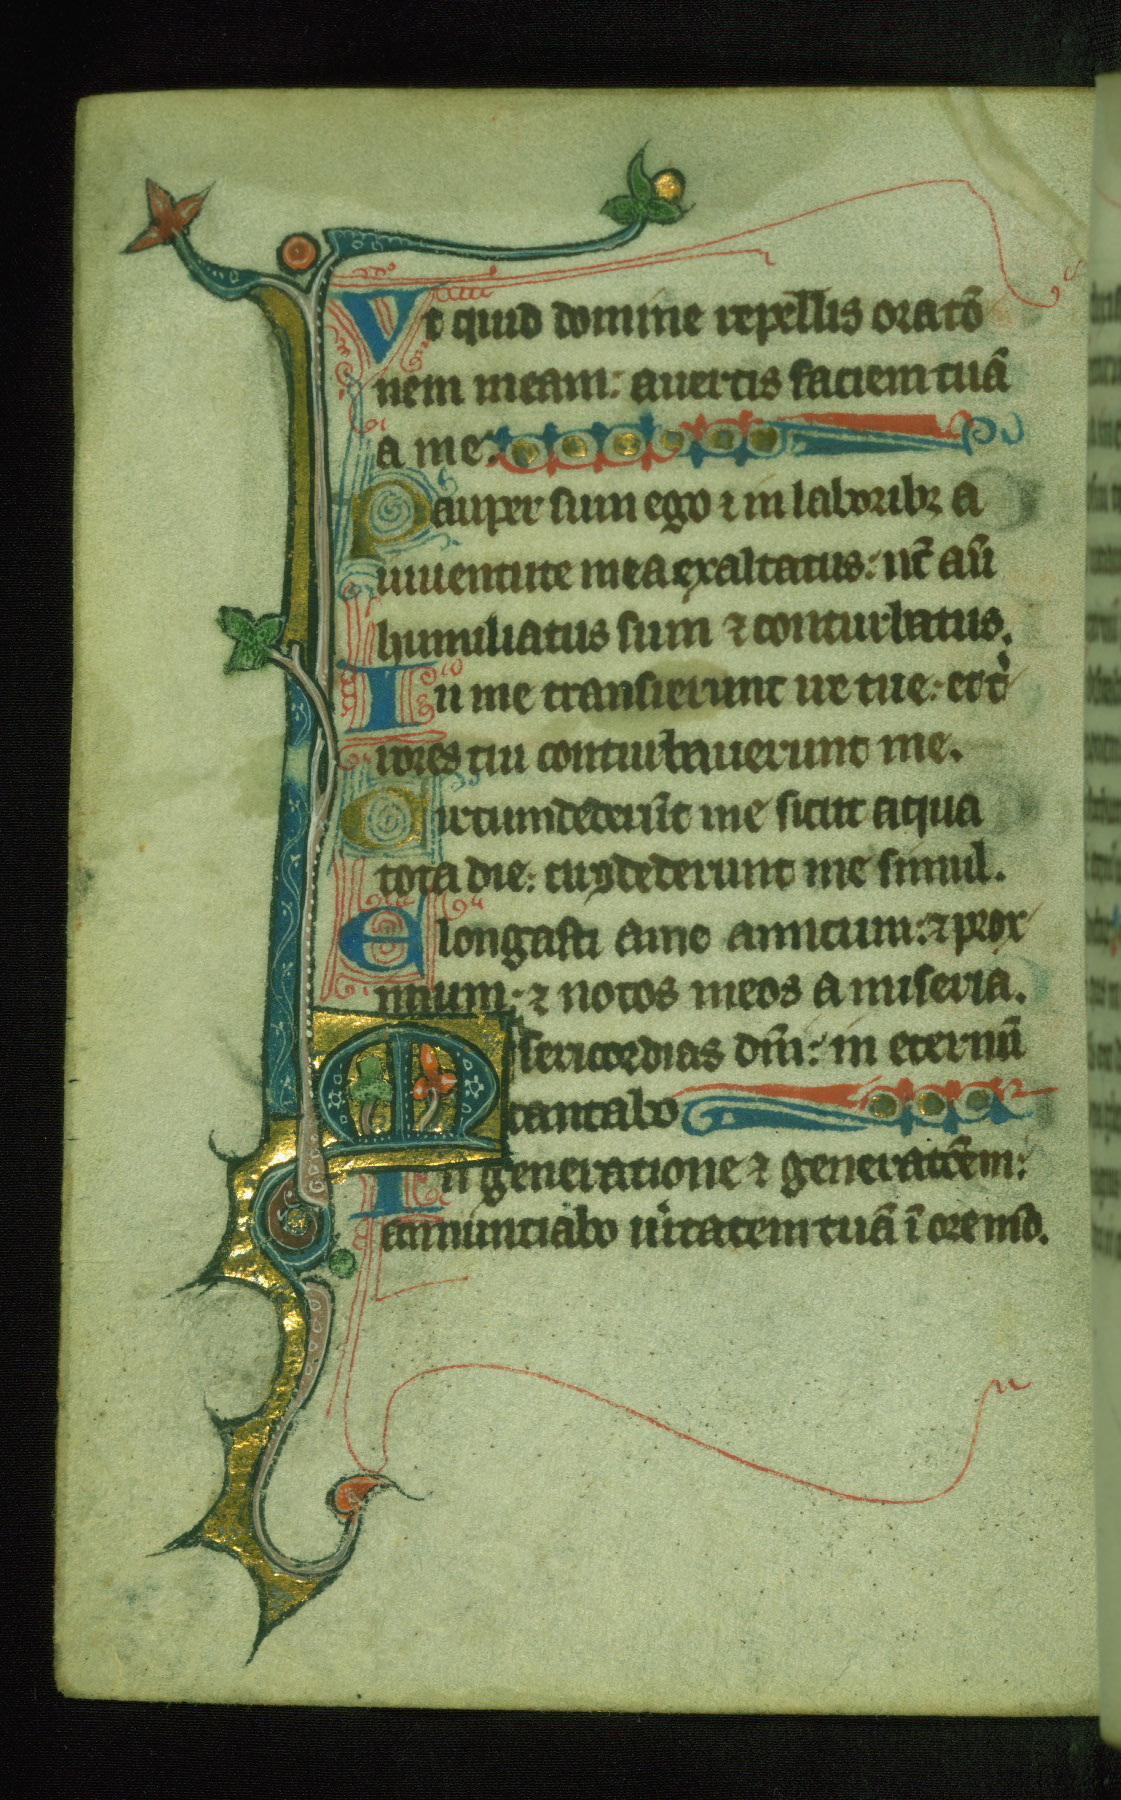 Vt quid domine repellis oratō
nem meam: auertis faciem tuā
a me.
Pauper sum ego ⁊ in laboribꝫ a
iuuentute mea exaltatus: ut̄ aū
humiliatus sum ⁊ conturbatus.
In me transierunt ire tue: et t̾
rores tui conturbauerunt me.
Circumdederūt me sicut aqua
tota die: circūdederunt me simul.
Elongasti a me amicum: ⁊ prox
imum: ⁊ notos meos a miseria.
Misericordias dn̄i: in eternū
cantabo
In generatione ⁊ generatōem:
annunciabo ueritatem tuā ī ore meo.